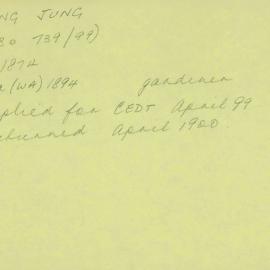 NG JUNG
80 739/99)
1874
(WA) 1894 gardener
plied for CEDT April 99
returned April 1900.